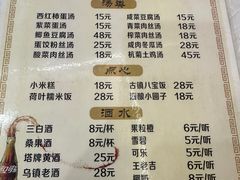 汤类
西红柿蛋汤 15元 咸菜豆腐汤 15元
紫菜蛋汤 15元 青菜肉丝汤 18元
鲫鱼豆腐汤 48元 榨菜肉丝汤 18元
蛋饺粉丝汤 25元 咸肉冬瓜汤 28元
酸菜肉丝汤 18元 扎蹄土鸡汤 45元
点心
小米糕 18元 古镇八宝饭 28元
荷叶糯米饭 18元 小圆子 18元
酒水
三白酒 8元/杯 果粒橙 6元/听
桑果酒 8元/杯 雪碧 5元/听
塔牌黄酒 25元 可乐 5元/听
乌镇老酒 28元 王老吉 6元/听
6元/听